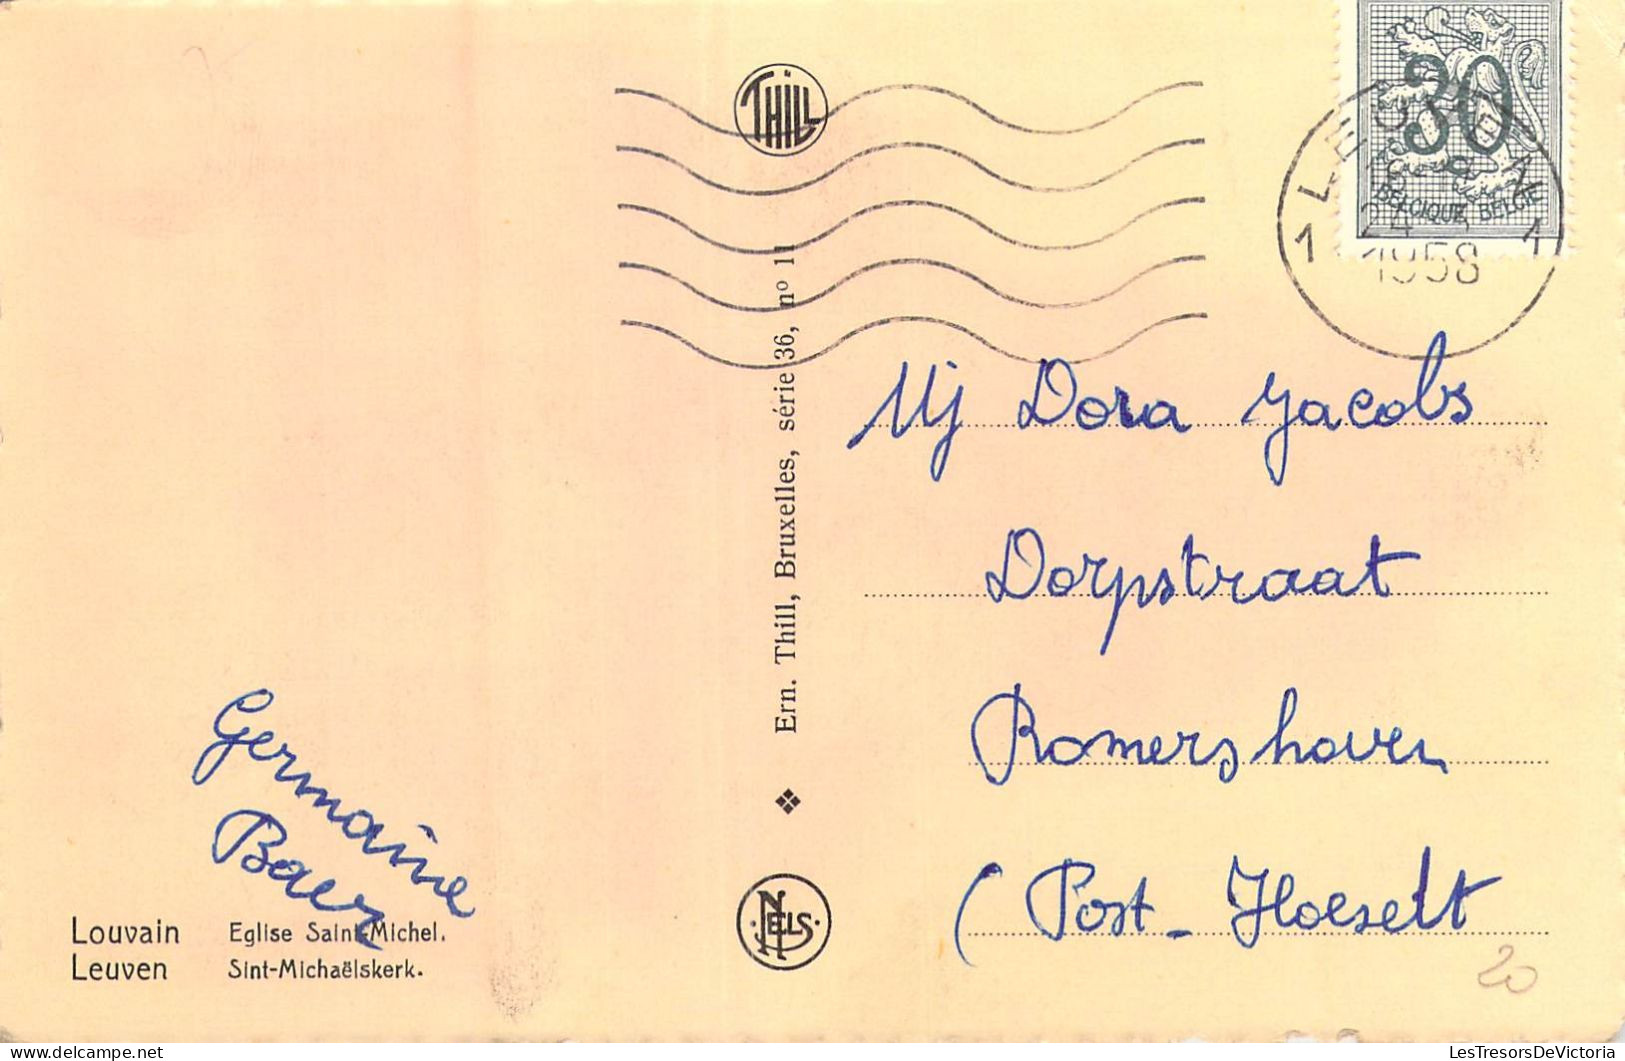 THILL
30
BELGIQUE BELGIË
LEUVEN
1 24 1
1958
Mj Dora Jacobs
Dorpstraat
Romershoven
(Post - Hoeselt
20
Ern. Thill, Bruxelles, série 36, nº 11
NELS
Germaine
Baer
Louvain Eglise Saint-Michel.
Leuven Sint-Michaëlskerk.
LesTresorsDeVictoria